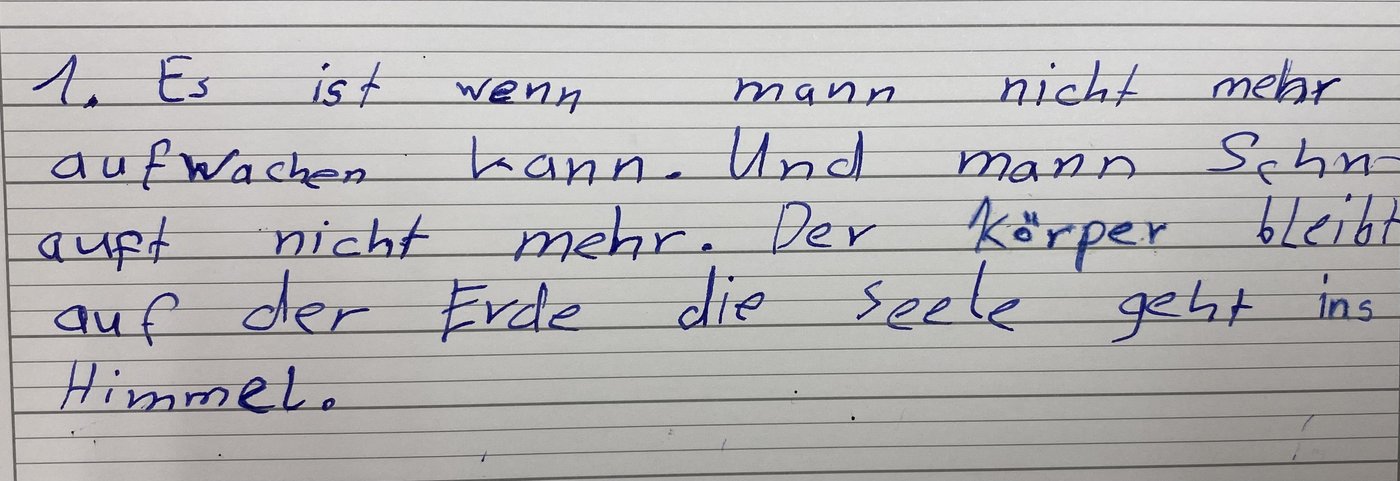 1. Es ist wenn mann nicht mehr
aufwachen kann. Und mann Schn-
auft nicht mehr. Der Körper bleibt
auf der Erde die seele geht ins
Himmel.